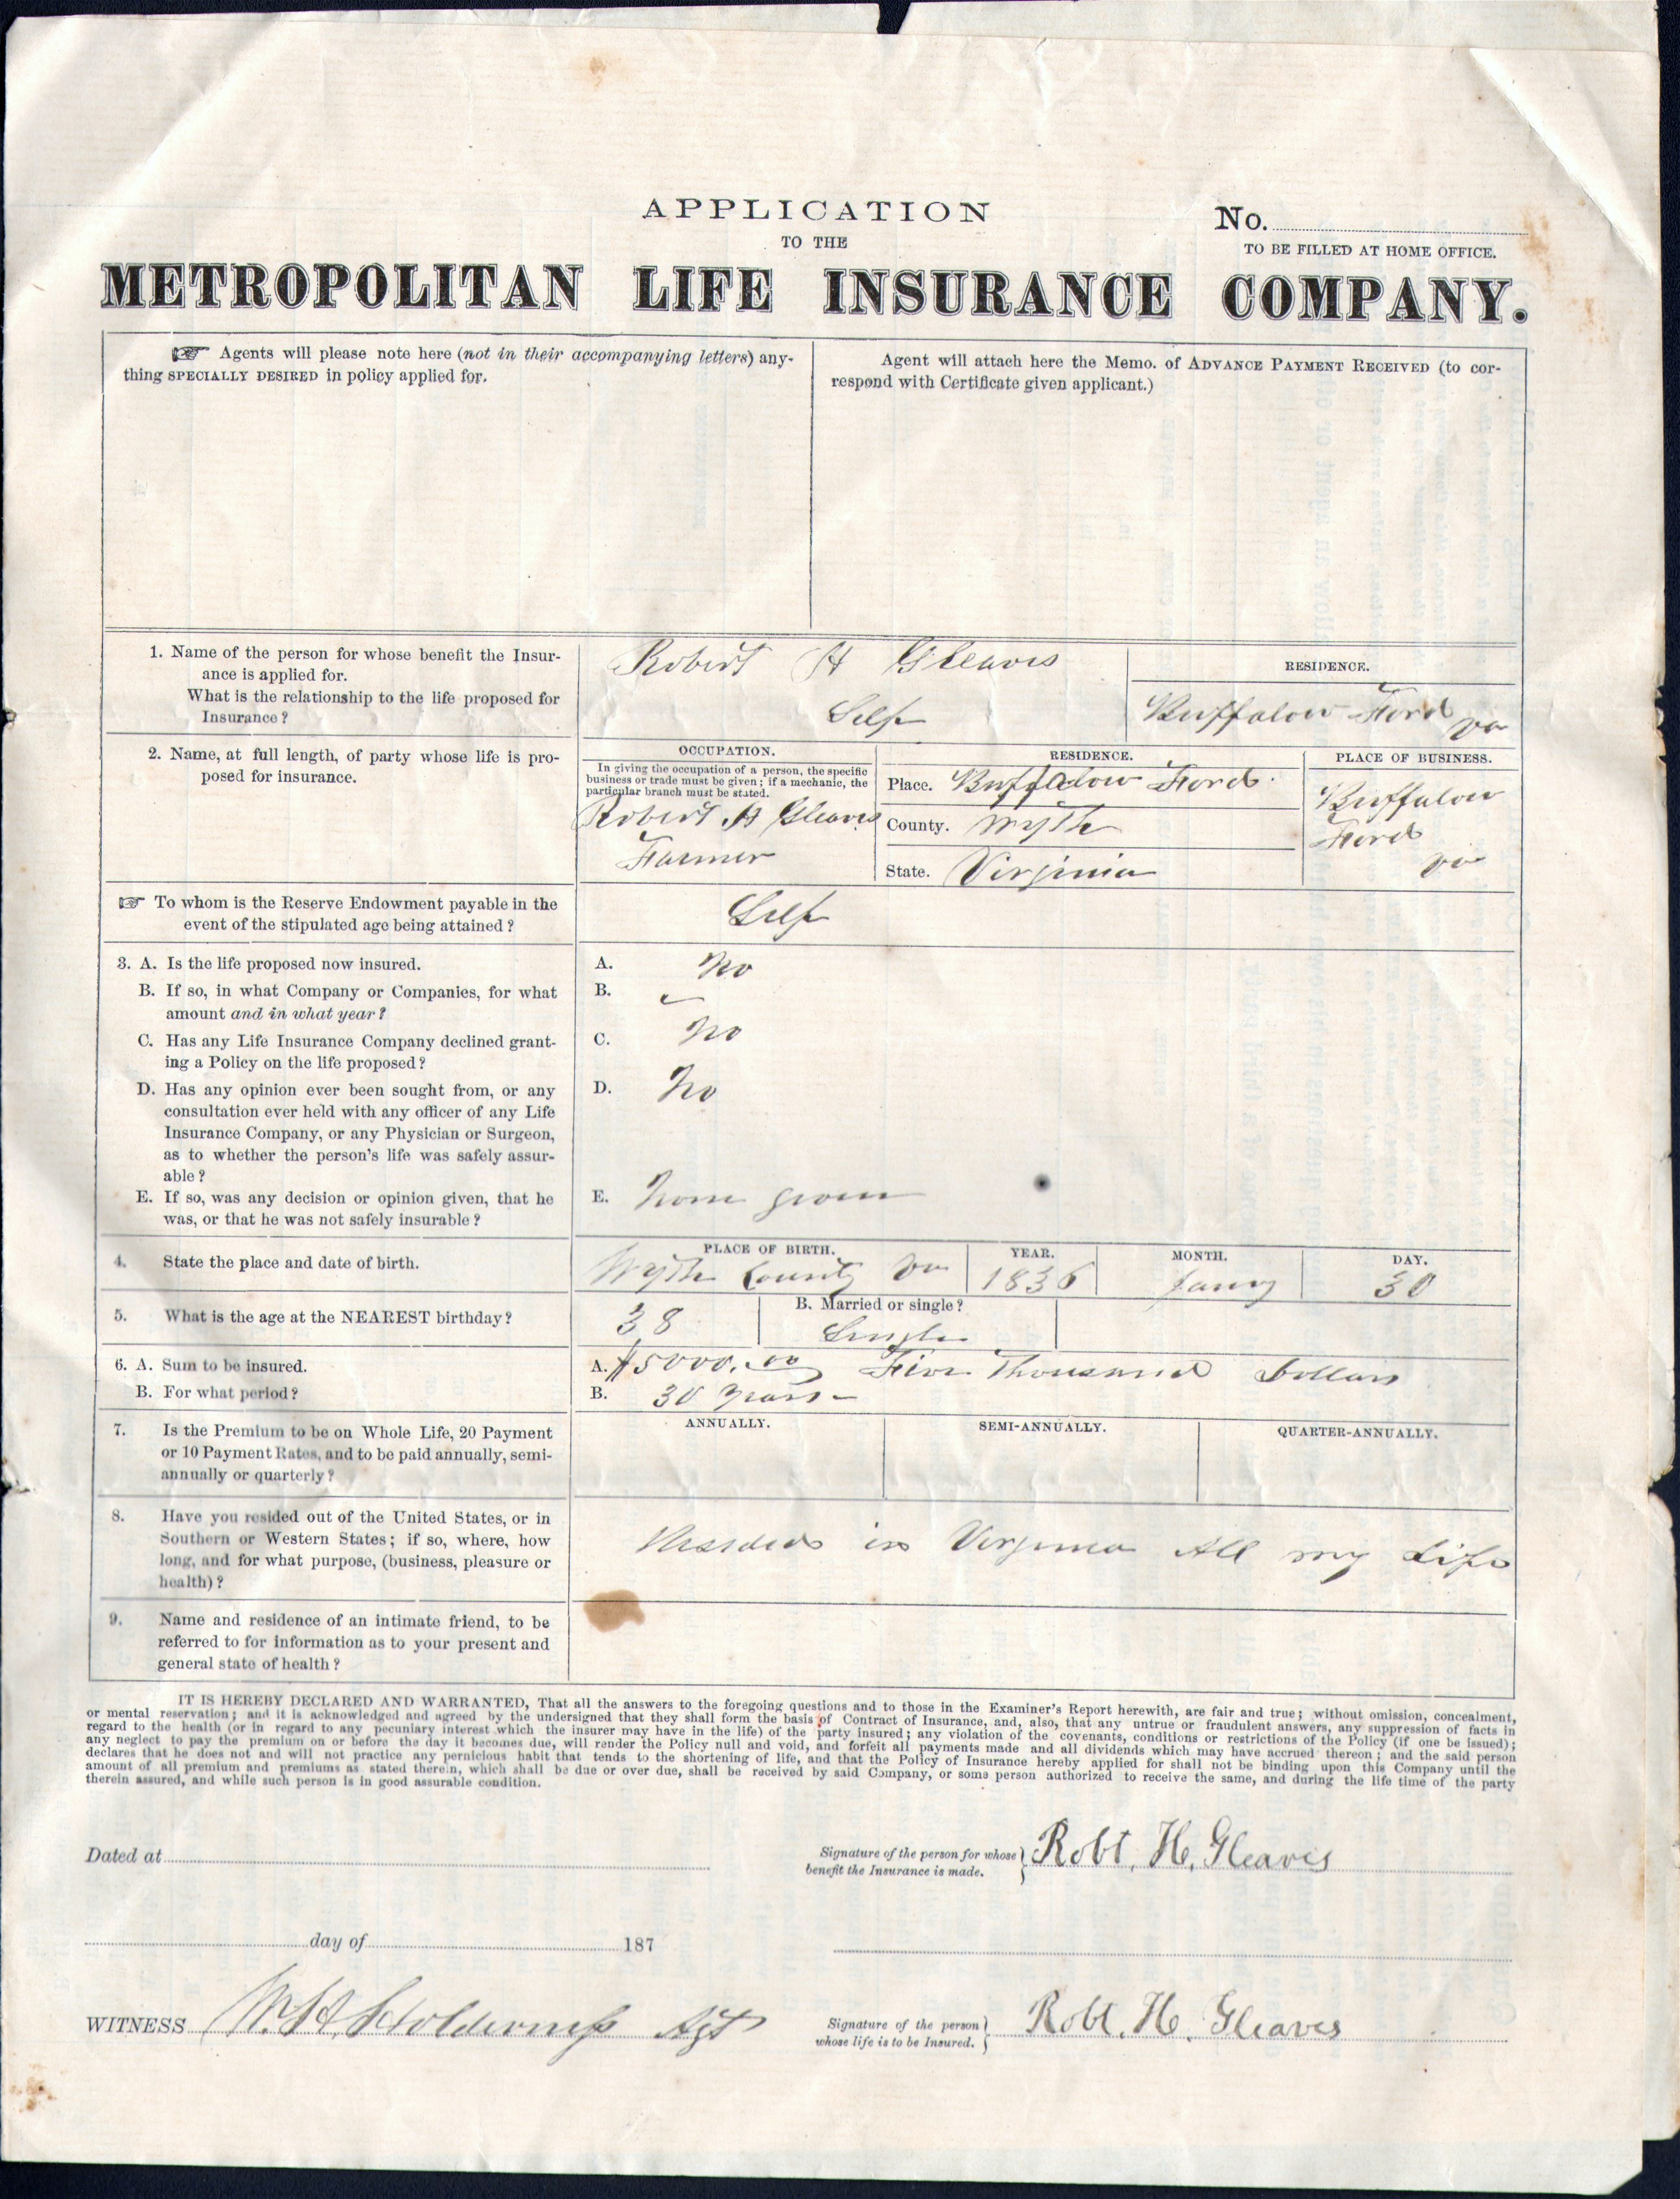 APPLICATION
No.
TO THE
TO BE FILLED AT HOME OFFICE.
METROPOLITAN LIFE INSURANCE COMPANY.
☞ Agents will please note here (not in their accompanying letters) any-
thing SPECIALLY DESIRED in policy applied for.
Agent will attach here the Memo. of ADVANCE PAYMENT RECEIVED (to cor-
respond with Certificate given applicant.)
1. Name of the person for whose benefit the Insur-
ance is applied for.
What is the relationship to the life proposed for
Insurance?
Robert H Gleaves
Self
RESIDENCE.
Buffalow Ford Va
2. Name, at full length, of party whose life is pro-
posed for insurance.
OCCUPATION.
In giving the occupation of a person, the specific
business or trade must be given; if a mechanic, the
particular branch must be stated.
Robert H Gleaves
Farmer
RESIDENCE.
Place. Buffalow Ford
County. Wythe
State. Virginia
PLACE OF BUSINESS.
Buffalow
Ford
Va
☞ To whom is the Reserve Endowment payable in the
event of the stipulated age being attained?
Self
3. A. Is the life proposed now insured.
A. No
B. If so, in what Company or Companies, for what
amount and in what year?
B.
C. Has any Life Insurance Company declined grant-
ing a Policy on the life proposed?
C. No
D. Has any opinion ever been sought from, or any
consultation ever held with any officer of any Life
Insurance Company, or any Physician or Surgeon,
as to whether the person's life was safely assur-
able?
D. No
E. If so, was any decision or opinion given, that he
was, or that he was not safely insurable?
E. None given
4. State the place and date of birth.
PLACE OF BIRTH.
Wythe County Va
YEAR.
1836
MONTH.
Jany
DAY.
30
5. What is the age at the NEAREST birthday?
38
B. Married or single?
Single
6. A. Sum to be insured.
A. $5000.00 Five Thousand Dollars
B. For what period?
B. 30 Years
7. Is the Premium to be on Whole Life, 20 Payment
or 10 Payment Rates, and to be paid annually, semi-
annually or quarterly?
ANNUALLY.
SEMI-ANNUALLY.
QUARTER-ANNUALLY.
8. Have you resided out of the United States, or in
Southern or Western States; if so, where, how
long, and for what purpose, (business, pleasure or
health)?
Resided in Virginia All my Life
9. Name and residence of an intimate friend, to be
referred to for information as to your present and
general state of health?
IT IS HEREBY DECLARED AND WARRANTED, That all the answers to the foregoing questions and to those in the Examiner's Report herewith, are fair and true; without omission, concealment,
or mental reservation; and it is acknowledged and agreed by the undersigned that they shall form the basis of Contract of Insurance, and, also, that any untrue or fraudulent answers, any suppression of facts in
regard to the health (or in regard to any pecuniary interest which the insurer may have in the life) of the party insured; any violation of the covenants, conditions or restrictions of the Policy (if one be issued);
any neglect to pay the premium on or before the day it becomes due, will render the Policy null and void, and forfeit all payments made and all dividends which may have accrued thereon; and the said person
declares that he does not and will not practice any pernicious habit that tends to the shortening of life, and that the Policy of Insurance hereby applied for shall not be binding upon this Company until the
amount of all premium and premiums as stated therein, which shall be due or over due, shall be received by said Company, or some person authorized to receive the same, and during the life time of the party
therein assured, and while such person is in good assurable condition.
Dated at
Signature of the person for whose
benefit the Insurance is made.
Robt. H. Gleaves
day of 187
WITNESS W. H. Holderness Agt
Signature of the person
whose life is to be Insured.
Robt. H. Gleaves